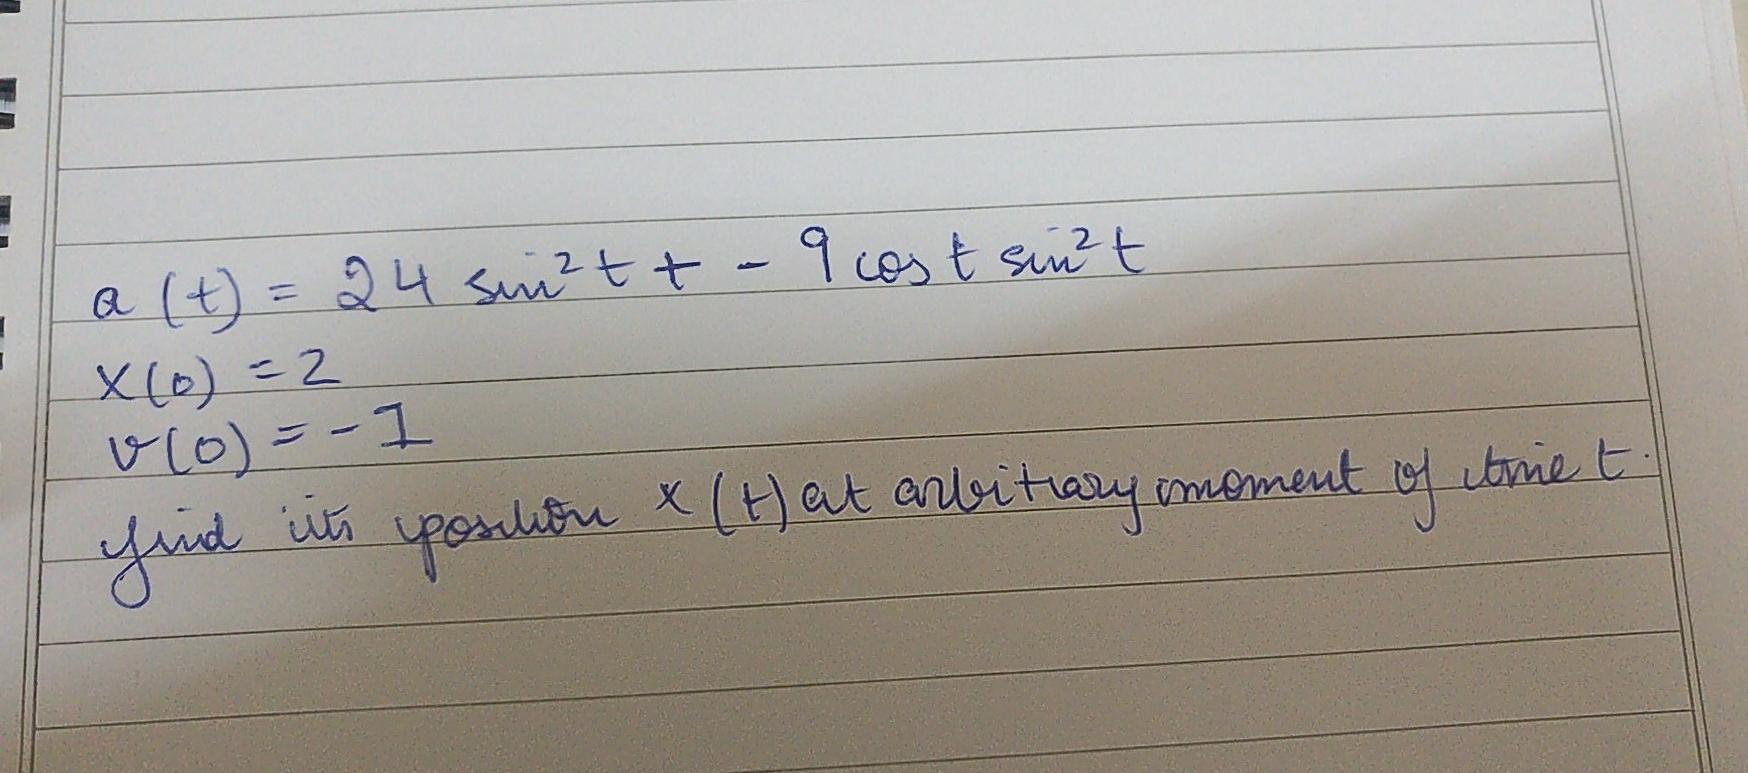 a (t) = 24 sin² t + - 9 cos t sin² t
x(0) = 2
v(0) = -1
find its position x (t) at arbitrary moment of time t.